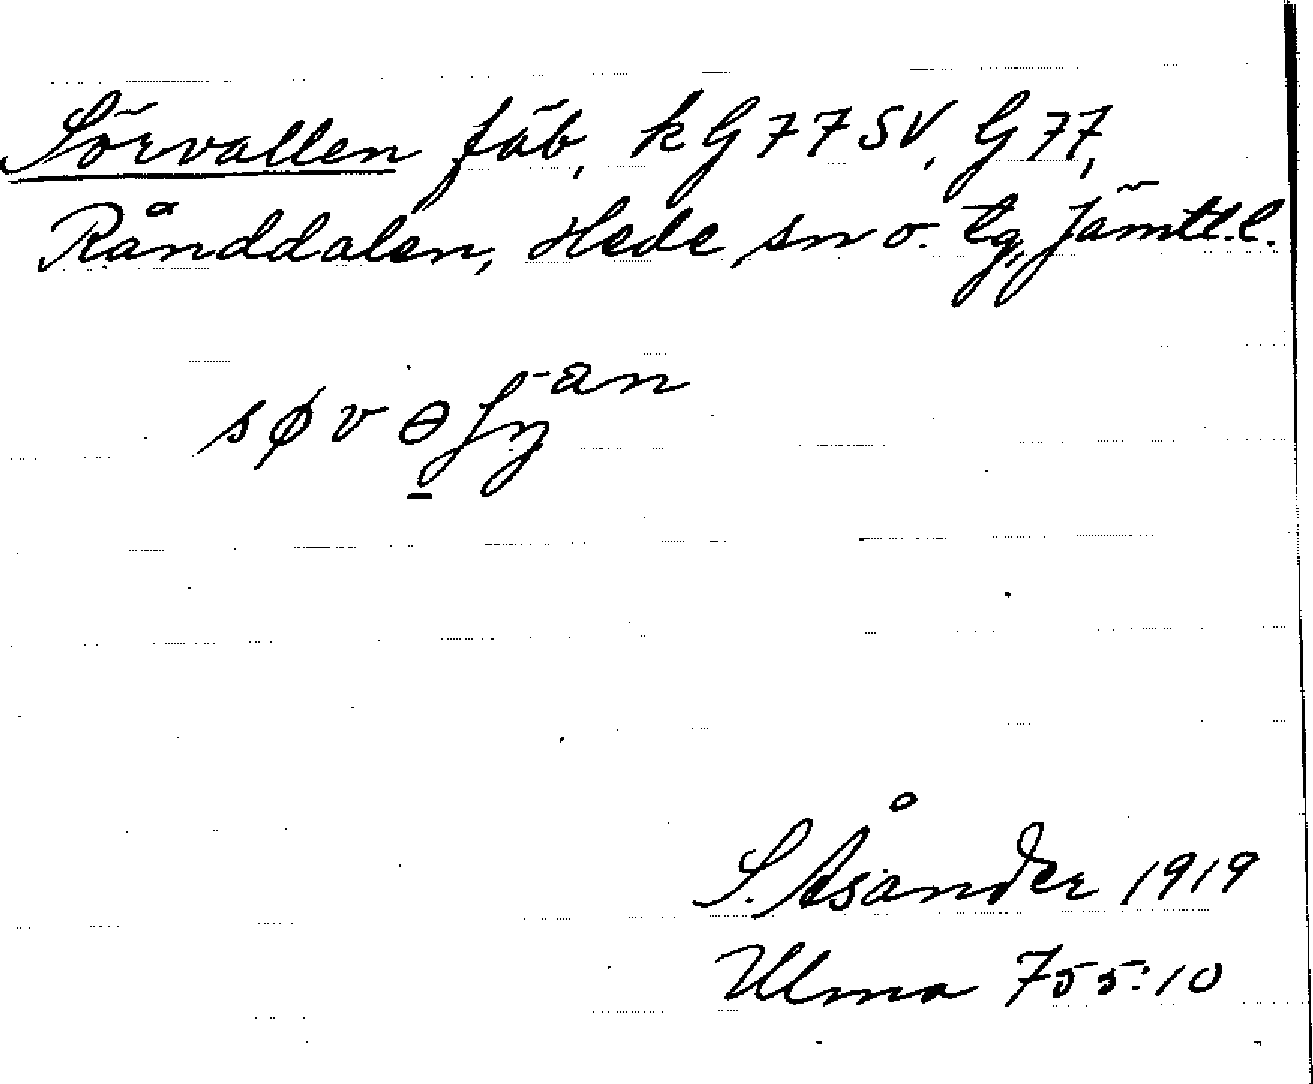 Sörvallen fäb, k G 77 SV, G 77,
Rånddalen, Hede sn o. tg, Jämtl.l.
S. Åsander 1919
Ulma 755:10